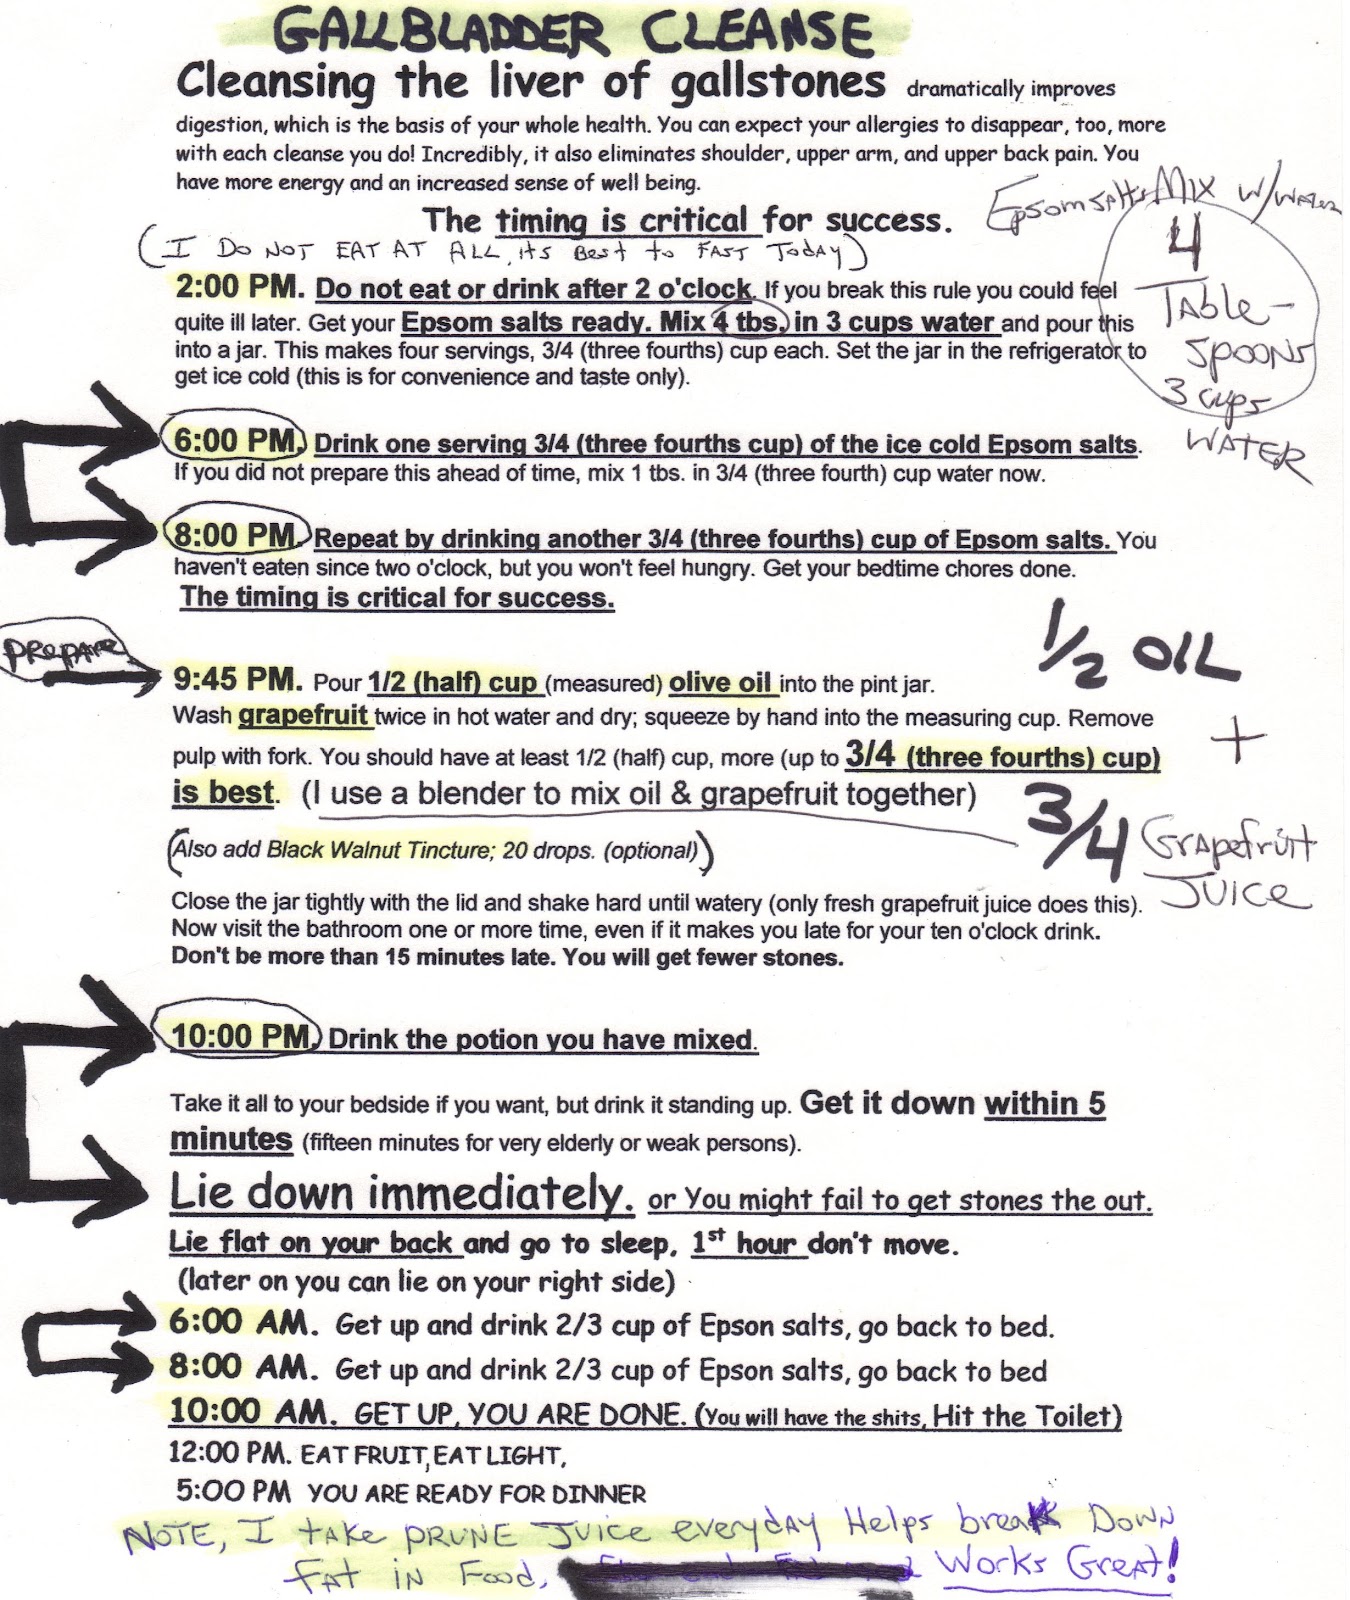 GALLBLADDER CLEANSE
Cleansing the liver of gallstones dramatically improves
digestion, which is the basis of your whole health. You can expect your allergies to disappear, too, more
with each cleanse you do! Incredibly, it also eliminates shoulder, upper arm, and upper back pain. You
have more energy and an increased sense of well being.
Epsom salts Mix w/water
4
Table-
spoons
3 cups
WATER
The timing is critical for success.
(I DO NOT EAT AT ALL, its Best to FAST Today)
2:00 PM. Do not eat or drink after 2 o'clock. If you break this rule you could feel
quite ill later. Get your Epsom salts ready. Mix 4 tbs. in 3 cups water and pour this
into a jar. This makes four servings, 3/4 (three fourths) cup each. Set the jar in the refrigerator to
get ice cold (this is for convenience and taste only).
6:00 PM. Drink one serving 3/4 (three fourths cup) of the ice cold Epsom salts.
If you did not prepare this ahead of time, mix 1 tbs. in 3/4 (three fourth) cup water now.
8:00 PM. Repeat by drinking another 3/4 (three fourths) cup of Epsom salts. You
haven't eaten since two o'clock, but you won't feel hungry. Get your bedtime chores done.
The timing is critical for success.
prepare
9:45 PM. Pour 1/2 (half) cup (measured) olive oil into the pint jar.
Wash grapefruit twice in hot water and dry; squeeze by hand into the measuring cup. Remove
pulp with fork. You should have at least 1/2 (half) cup, more (up to 3/4 (three fourths) cup)
is best. (I use a blender to mix oil & grapefruit together)
1/2 OIL
+
3/4 Grapefruit
JUICE
(Also add Black Walnut Tincture; 20 drops. (optional))
Close the jar tightly with the lid and shake hard until watery (only fresh grapefruit juice does this).
Now visit the bathroom one or more time, even if it makes you late for your ten o'clock drink.
Don't be more than 15 minutes late. You will get fewer stones.
10:00 PM. Drink the potion you have mixed.
Take it all to your bedside if you want, but drink it standing up. Get it down within 5
minutes (fifteen minutes for very elderly or weak persons).
Lie down immediately. or You might fail to get stones the out.
Lie flat on your back and go to sleep, 1st hour don't move.
(later on you can lie on your right side)
6:00 AM. Get up and drink 2/3 cup of Epson salts, go back to bed.
8:00 AM. Get up and drink 2/3 cup of Epson salts, go back to bed
10:00 AM. GET UP, YOU ARE DONE. (You will have the shits, Hit the Toilet)
12:00 PM. EAT FRUIT, EAT LIGHT,
5:00 PM YOU ARE READY FOR DINNER
NOTE, I take PRUNE JUICE everyday Helps break DOWN
FAT in Food, Works Great!